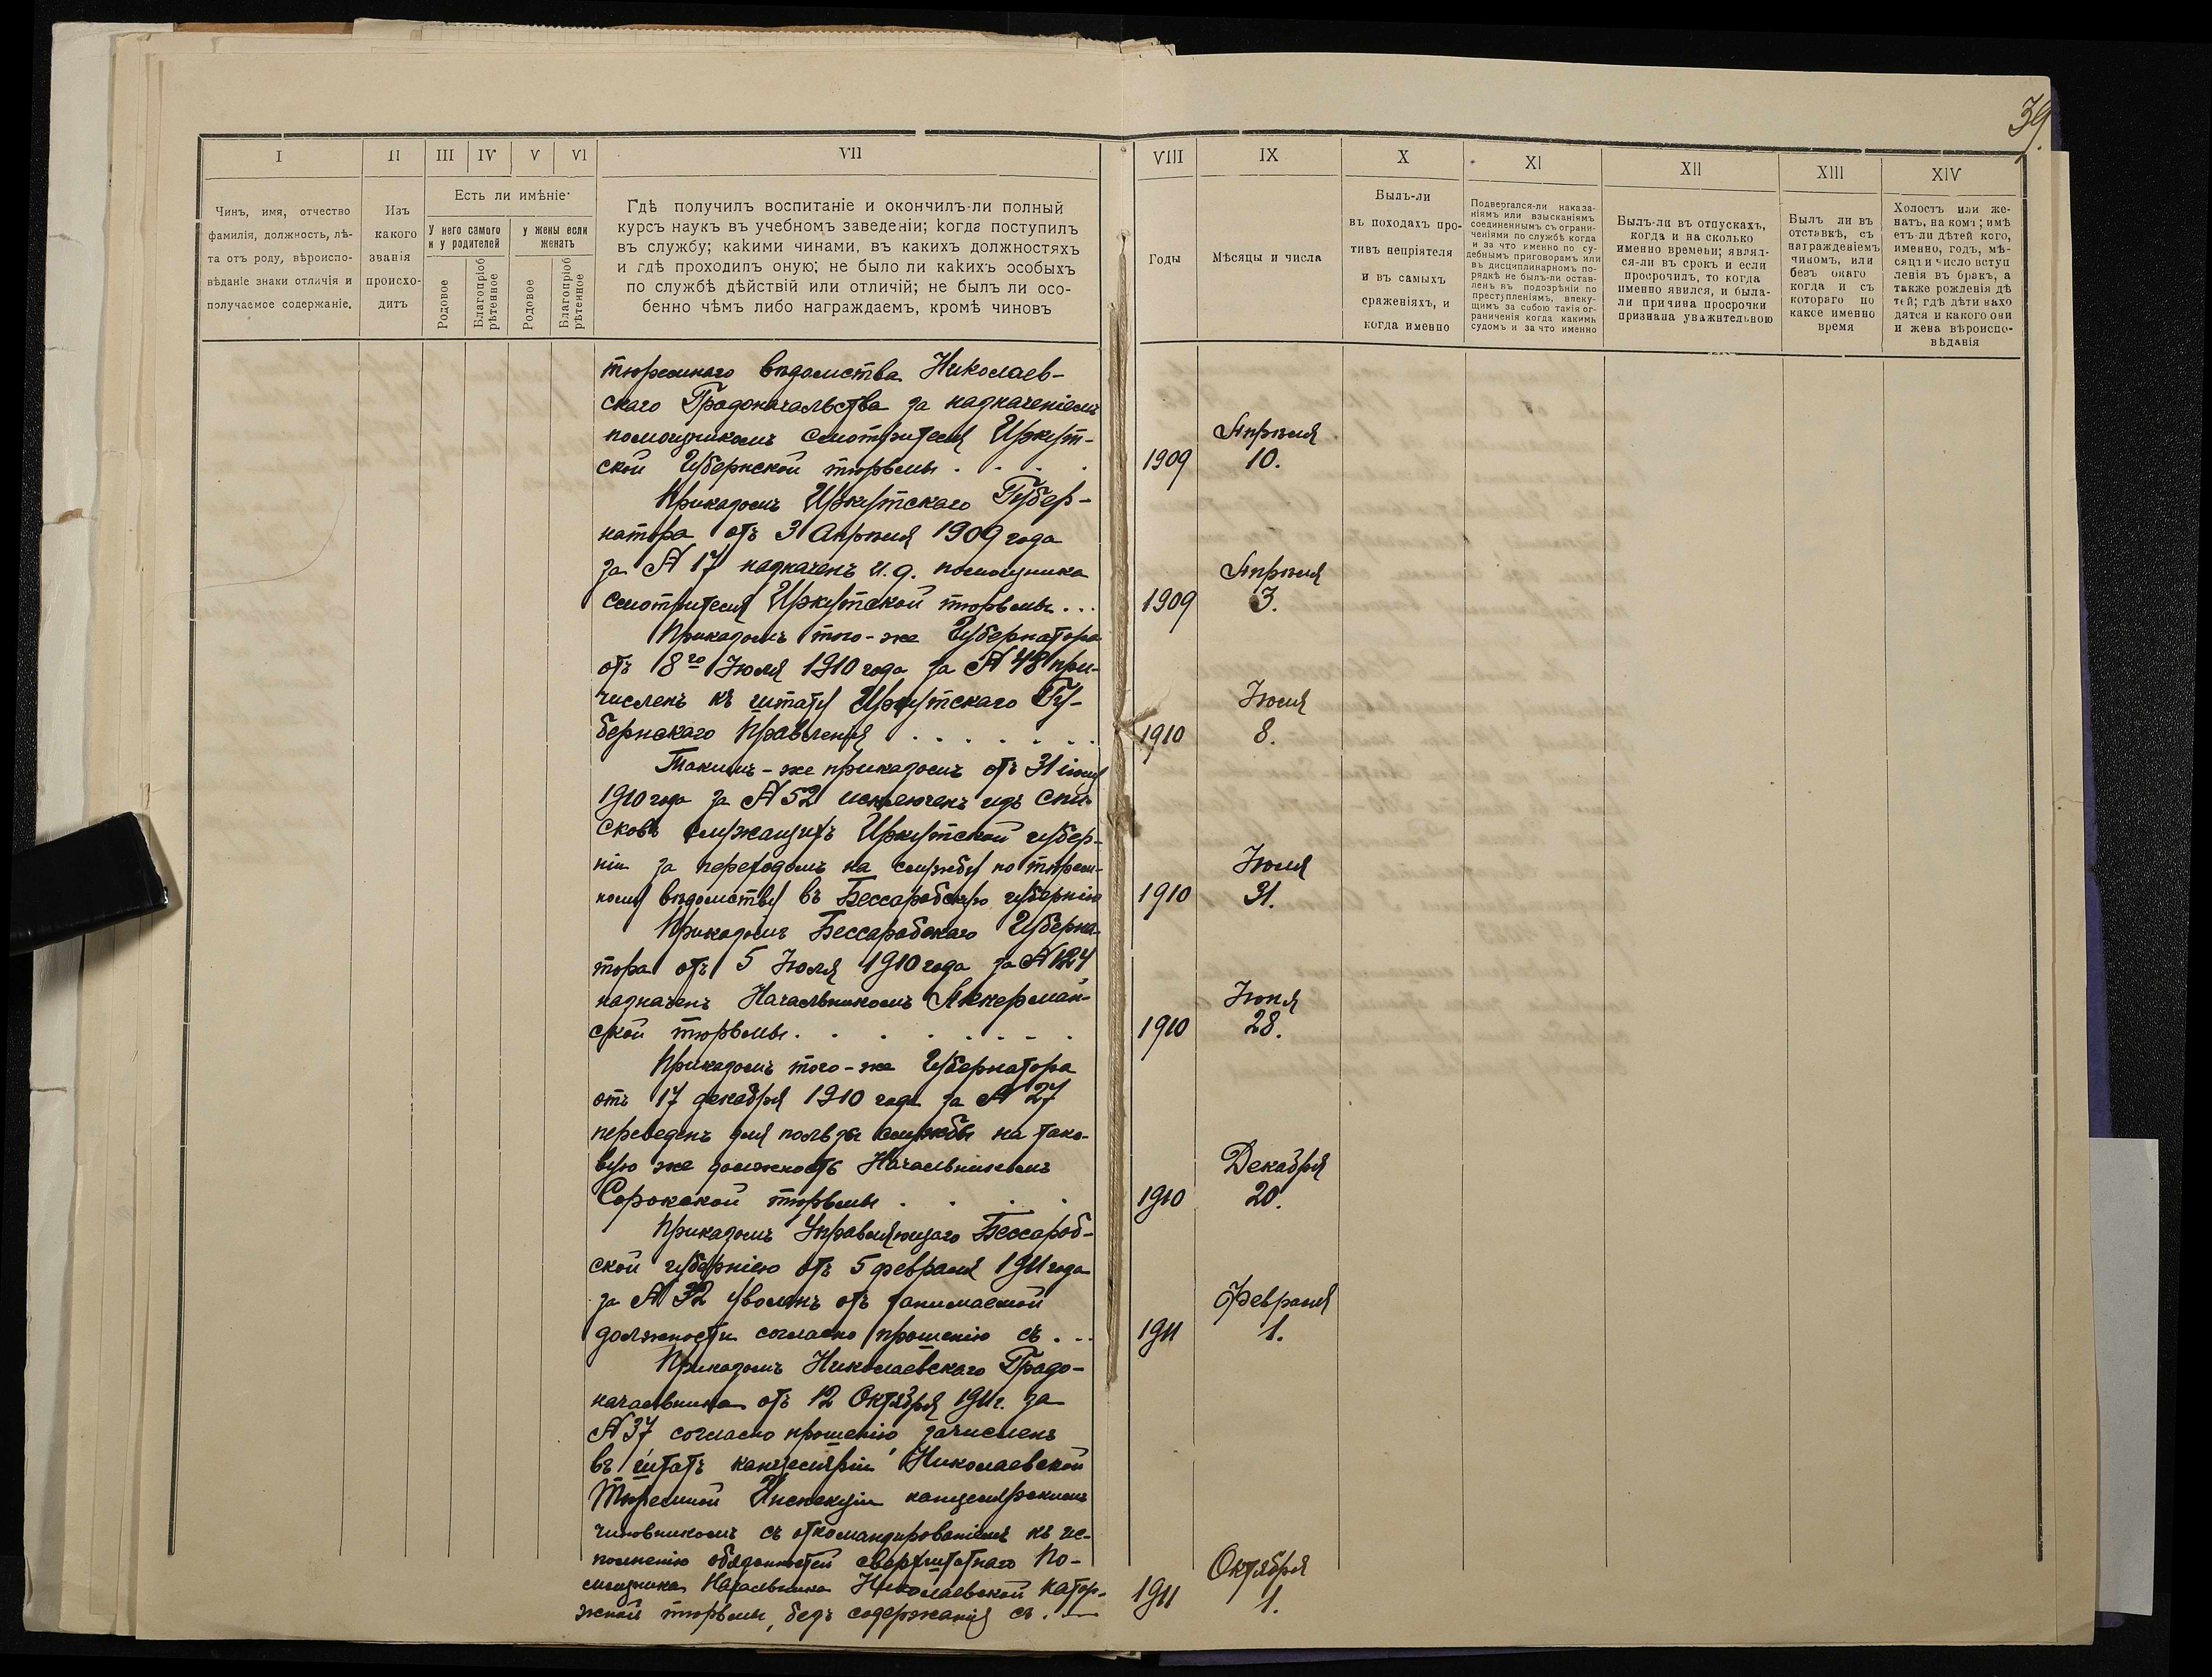 39.
I II III IV V VI VII VIII IX X XI XII XIII XIV
Чинъ, имя, отчество
фамилія, должность, лѣ-
та отъ роду, вѣроиспо-
вѣданіе знаки отличія и
получаемое содержаніе.
Изъ
какого
званія
происхо-
дитъ
Есть ли имѣніе
У него самого
и у родителей
у жены если
женатъ
Родовое
Благопріоб
рѣтенное
Родовое
Благопріоб
рѣтенное
Гдѣ получилъ воспитаніе и окончилъ-ли полный
курсъ наукъ въ учебномъ заведеніи; когда поступилъ
въ службу; какими чинами, въ какихъ должностяхъ
и гдѣ проходилъ оную; не было ли какихъ особыхъ
по службѣ дѣйствій или отличій; не былъ ли осо-
бенно чѣмъ либо награждаемъ, кромѣ чиновъ
Годы
Мѣсяцы и числа
Былъ-ли
въ походахъ про-
тивъ непріятеля
и въ самыхъ
сраженіяхъ, и
когда именно
Подвергался-ли наказа-
ніямъ или взысканіямъ
соединеннымъ съ ограни-
ченіями по службѣ когда
и за что именно по су-
дебнымъ приговорамъ или
въ дисциплинарномъ по-
рядкѣ не былъ-ли остав-
ленъ въ подозрѣніи по
преступленіямъ, влеку-
щимъ за собою такія ог-
раниченія когда какимъ
судомъ и за что именно
Былъ-ли въ отпускахъ,
когда и на сколько
именно времени; являл-
ся-ли въ срокъ и если
просрочилъ, то когда
именно явился, и была-
ли причина просрочки
признана уважительною
Былъ ли въ
отставкѣ, съ
награжденіемъ
чиномъ, или
безъ онаго
когда и съ
котораго по
какое именно
время
Холостъ или же-
натъ, на комъ; имѣ
етъ-ли дѣтей кого,
именно, годъ, мѣ-
сяцъ и число вступ
ленія въ бракъ, а
также рожденія дѣ
тей; гдѣ дѣти нахо
дятся и какого они
и жена вѣроиспо-
вѣданія
тюремнаго вѣдомства Николаев-
скаго Градоначальства за назначеніемъ
помощникомъ смотрителя Иркут-
ской Губернской тюрьмы . . . . 1909 Апрѣля 10.
Приказомъ Иркутскаго Губер-
натора отъ 3 Апрѣля 1909 года
за № 17 назначенъ и. д. помощника
смотрителя Иркутской тюрьмы . . . 1909 Апрѣля 3.
Приказомъ того-же Губернатора
отъ 8го Іюля 1910 года за № 48 при-
численъ къ штату Иркутскаго Гу-
бернскаго Правленія . . . . . . . 1910 Іюля 8.
Такимъ-же приказомъ отъ 31 іюля
1910 года за № 52 исключенъ изъ спи-
сковъ служащихъ Иркутской губер-
ніи за переходомъ на службу по тюрем-
ному вѣдомству въ Бессарабскую губернію 1910 Іюля 31.
Приказомъ Бессарабскаго Губерна-
тора отъ 5 Іюля 1910 года за № 124
назначенъ Начальникомъ Аккерман-
ской тюрьмы . . . . . . . 1910 Іюня 28.
Приказомъ того-же Губернатора
отъ 17 декабря 1910 года за № 27
переведенъ для пользы службы на тако-
вую же должность Начальникомъ
Сорокской тюрьмы . . . . 1910 Декабря 20.
Приказомъ Управляющаго Бессараб-
ской губерніею отъ 5 февраля 1911 года
за № 32 уволенъ отъ занимаемой
должности согласно прошенію съ . . . 1911 Февраля 1.
Приказомъ Николаевскаго Градо-
начальника отъ 12 Октября 1911 г. за
№ 37 согласно прошенію зачисленъ
въ штатъ канцеляріи Николаевской
Тюремной Инспекціи канцелярскимъ
чиновникомъ съ откомандированіемъ къ ис-
полненію обязанностей сверхштатнаго По-
мощника Начальника Николаевской катор-
жной тюрьмы, безъ содержанія съ . — 1911 Октября 1.